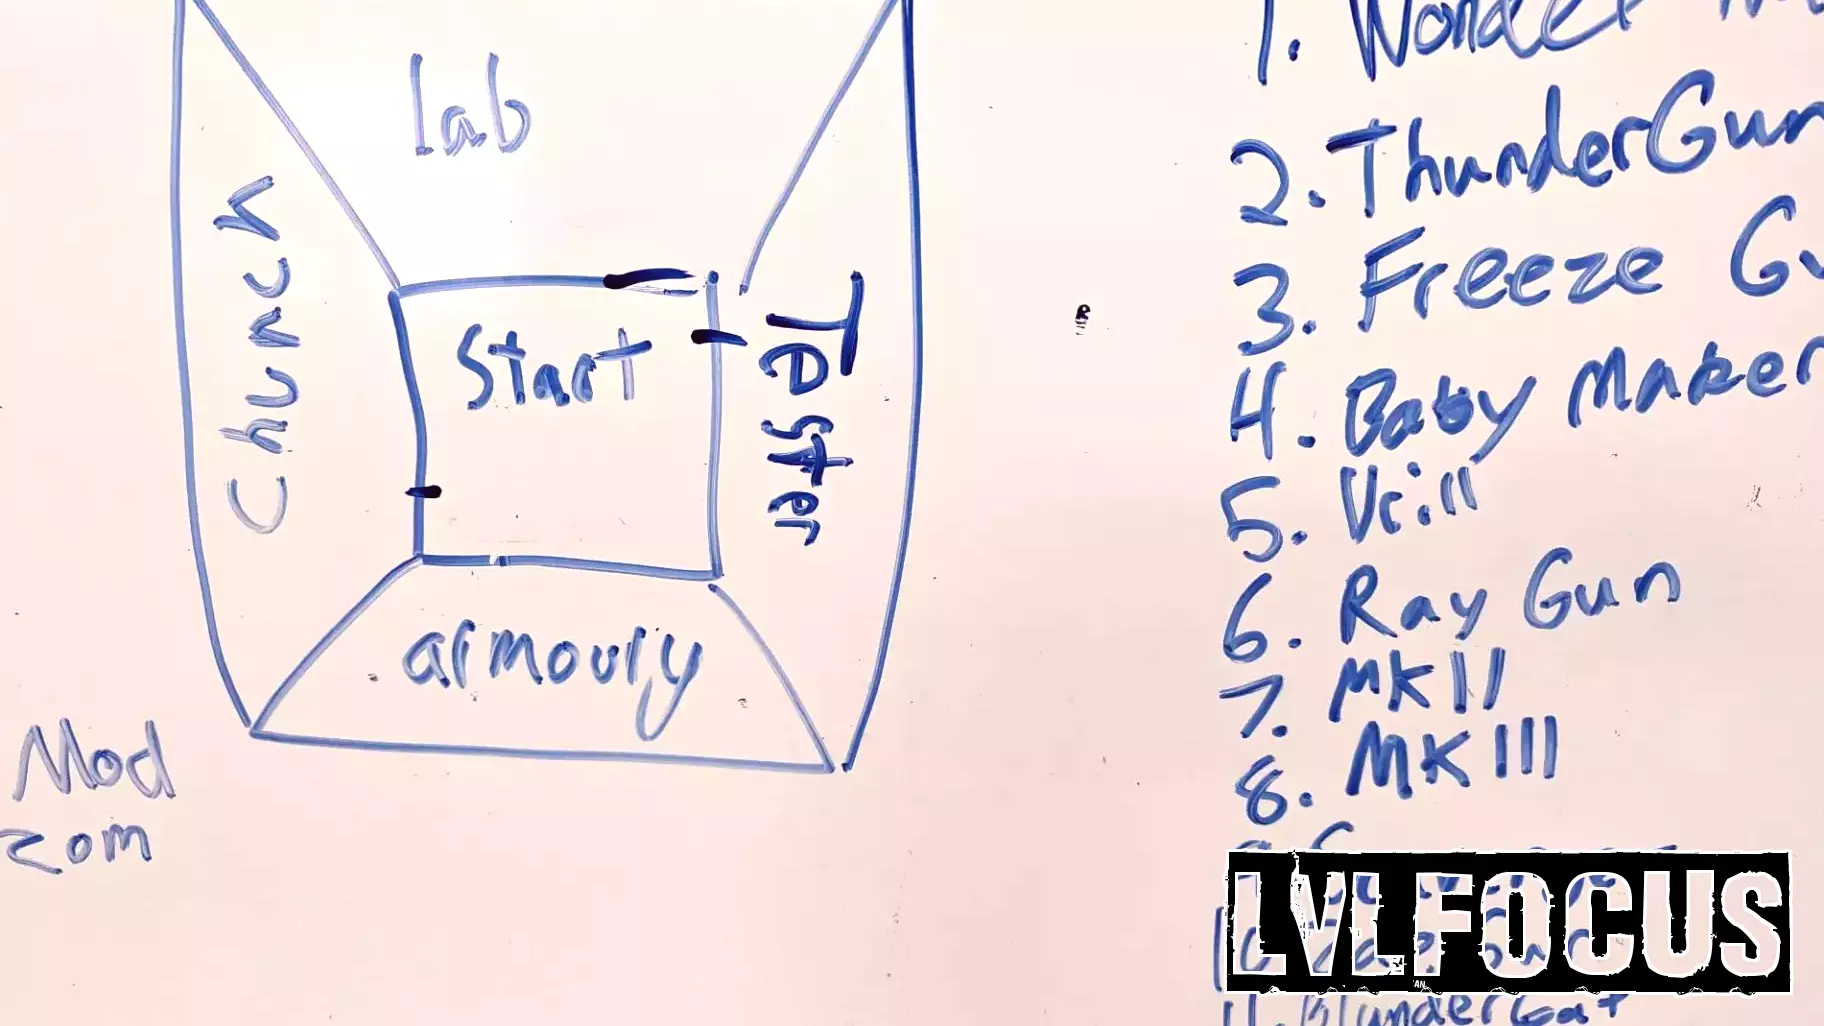 lab
Chunch
Start
Taster
armoury
Mod
zom
1. Wonder
2. ThunderGun
3. Freeze
4. Baby Maker
5. Vrill
6. Ray Gun
7. MKII
8. MKIII
LVLFOCUS
11. BlunderGat